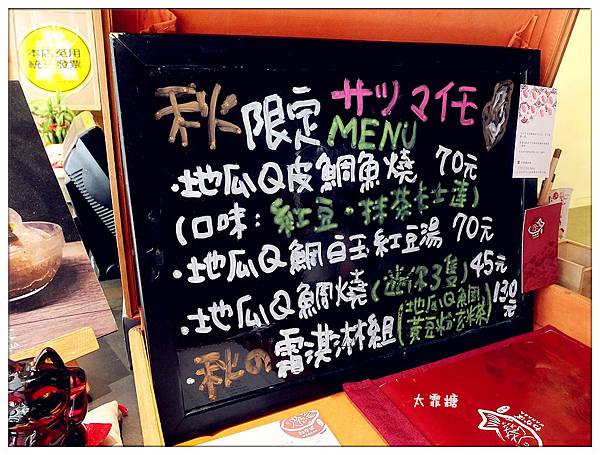 本店免用
統一發票
秋 限定 サツマイモ
MENU
·地瓜Q皮鯛魚燒 70元
(口味：紅豆·抹茶卡士達)
·地瓜Q鯛白玉紅豆湯 70元
·地瓜Q鯛燒(迷你3隻)45元
·秋の霜淇淋組(地瓜Q鯛 黃豆粉玄米)130元
太霏糖